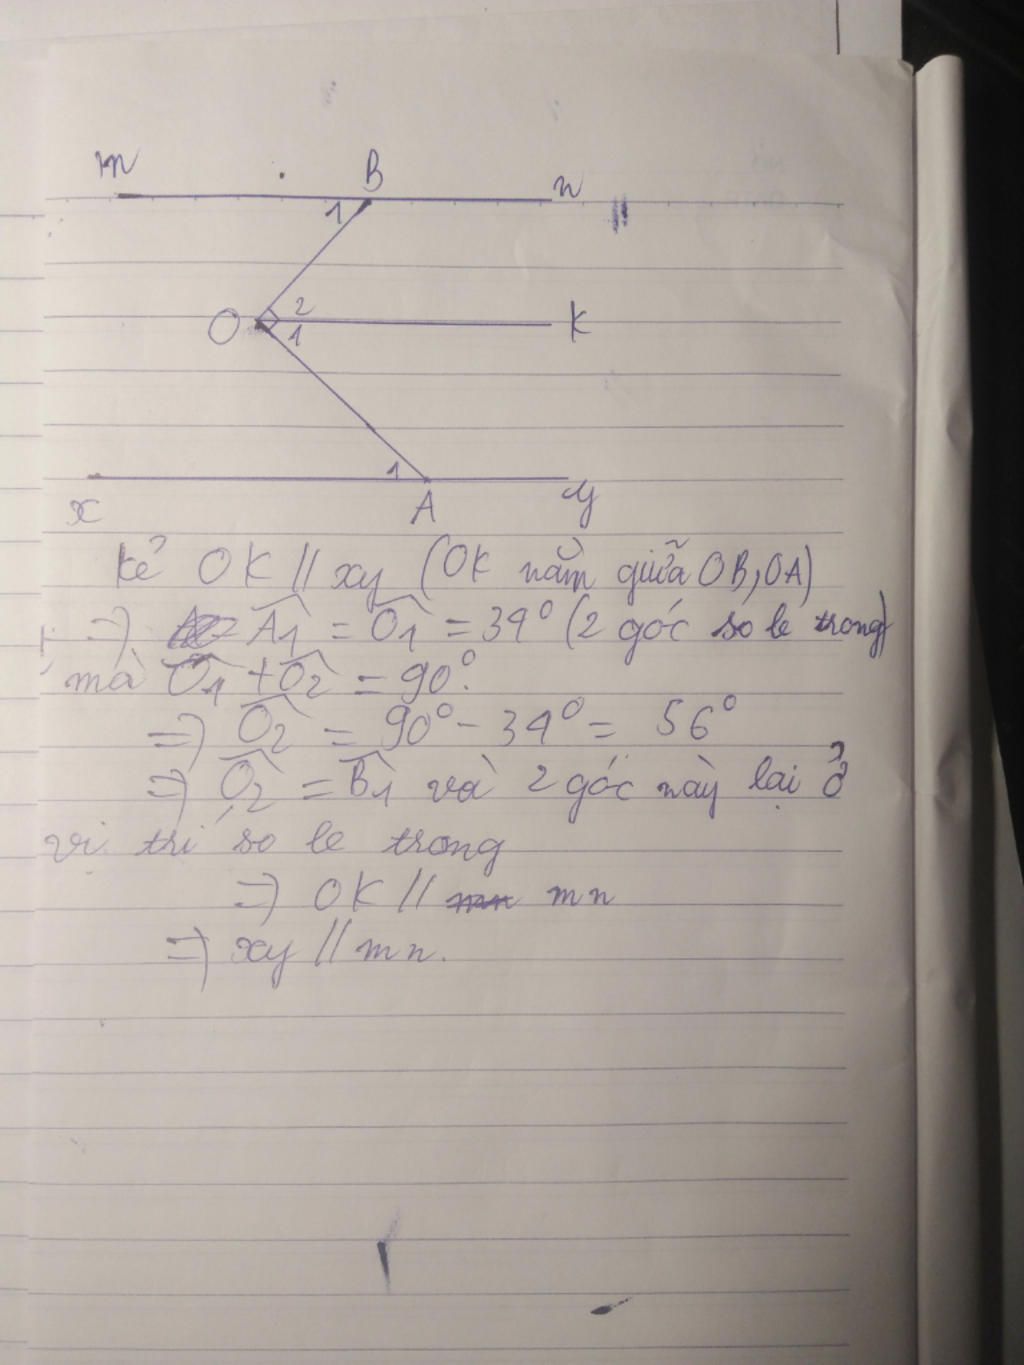 m B n
1
O 2 K
1
1
x A y
Kẻ OK // xy (OK nằm giữa OB, OA)
=> Â1 = Ô1 = 34° (2 góc so le trong)
mà Ô1 + Ô2 = 90°.
=> Ô2 = 90° - 34° = 56°
=> Ô2 = B̂1 và 2 góc này lại ở
vị trí so le trong
=> OK // mn
=> xy // mn.